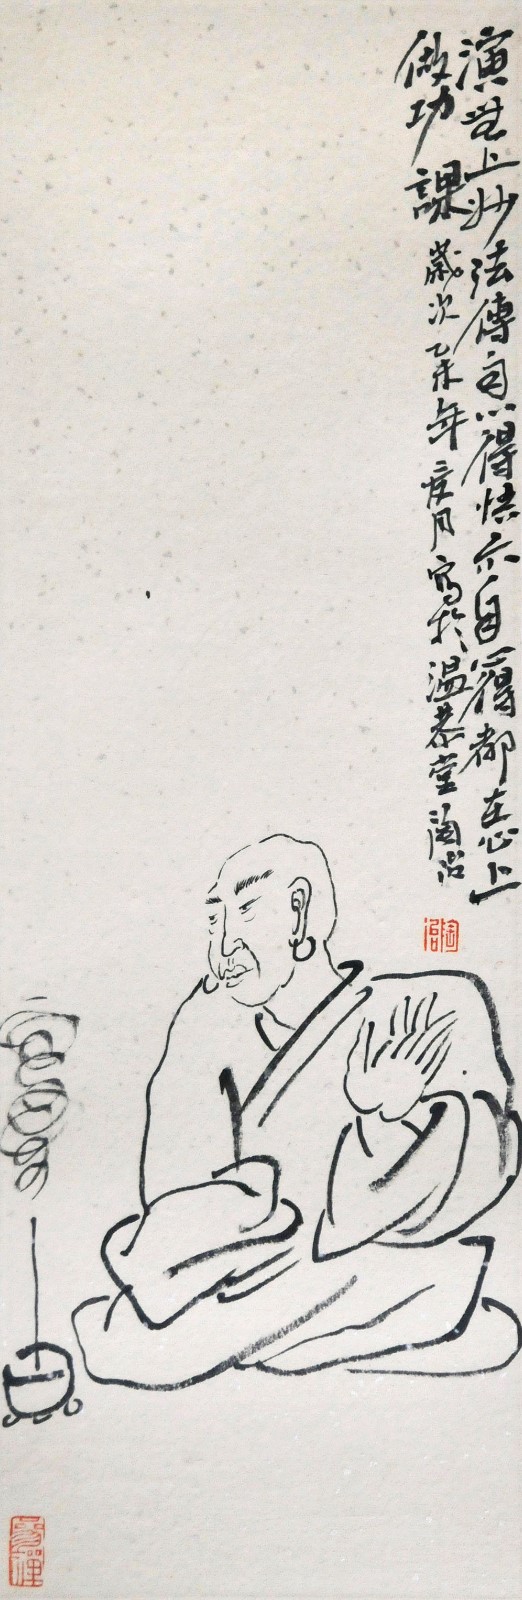 演世上妙法傳自心得悟亦自心得都在心上
做功課歲次乙未年夏月寫於溫恭堂陶沿